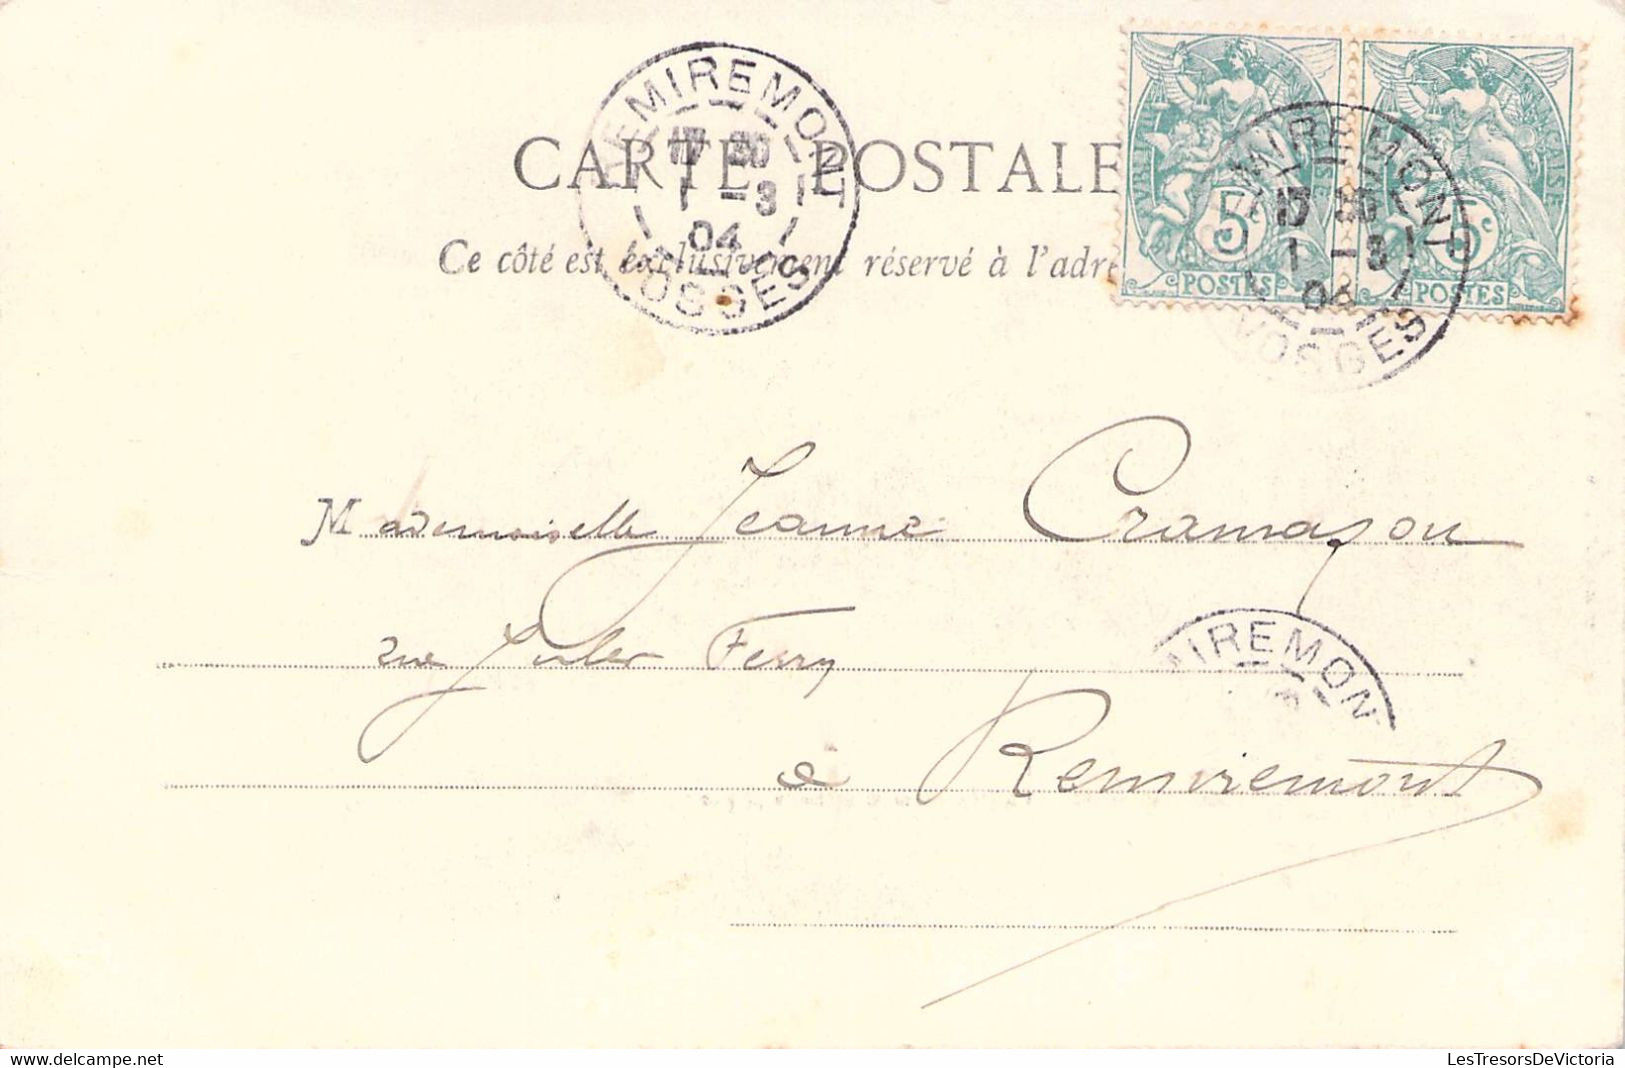 CARTE POSTALE
Ce côté est exclusivement réservé à l'adre
REMIREMONT
17 30
1 -3
04
VOSGES
RÉPUBLIQUE FRANÇAISE
5c
POSTES
FRANÇAISE
5c
POSTES
REMIREMONT
1 -3
04
VOSGES
Mademoiselle Jeanne Cramazou
rue Jules Ferry
MIREMON
à Remiremont
LesTresorsDeVictoria